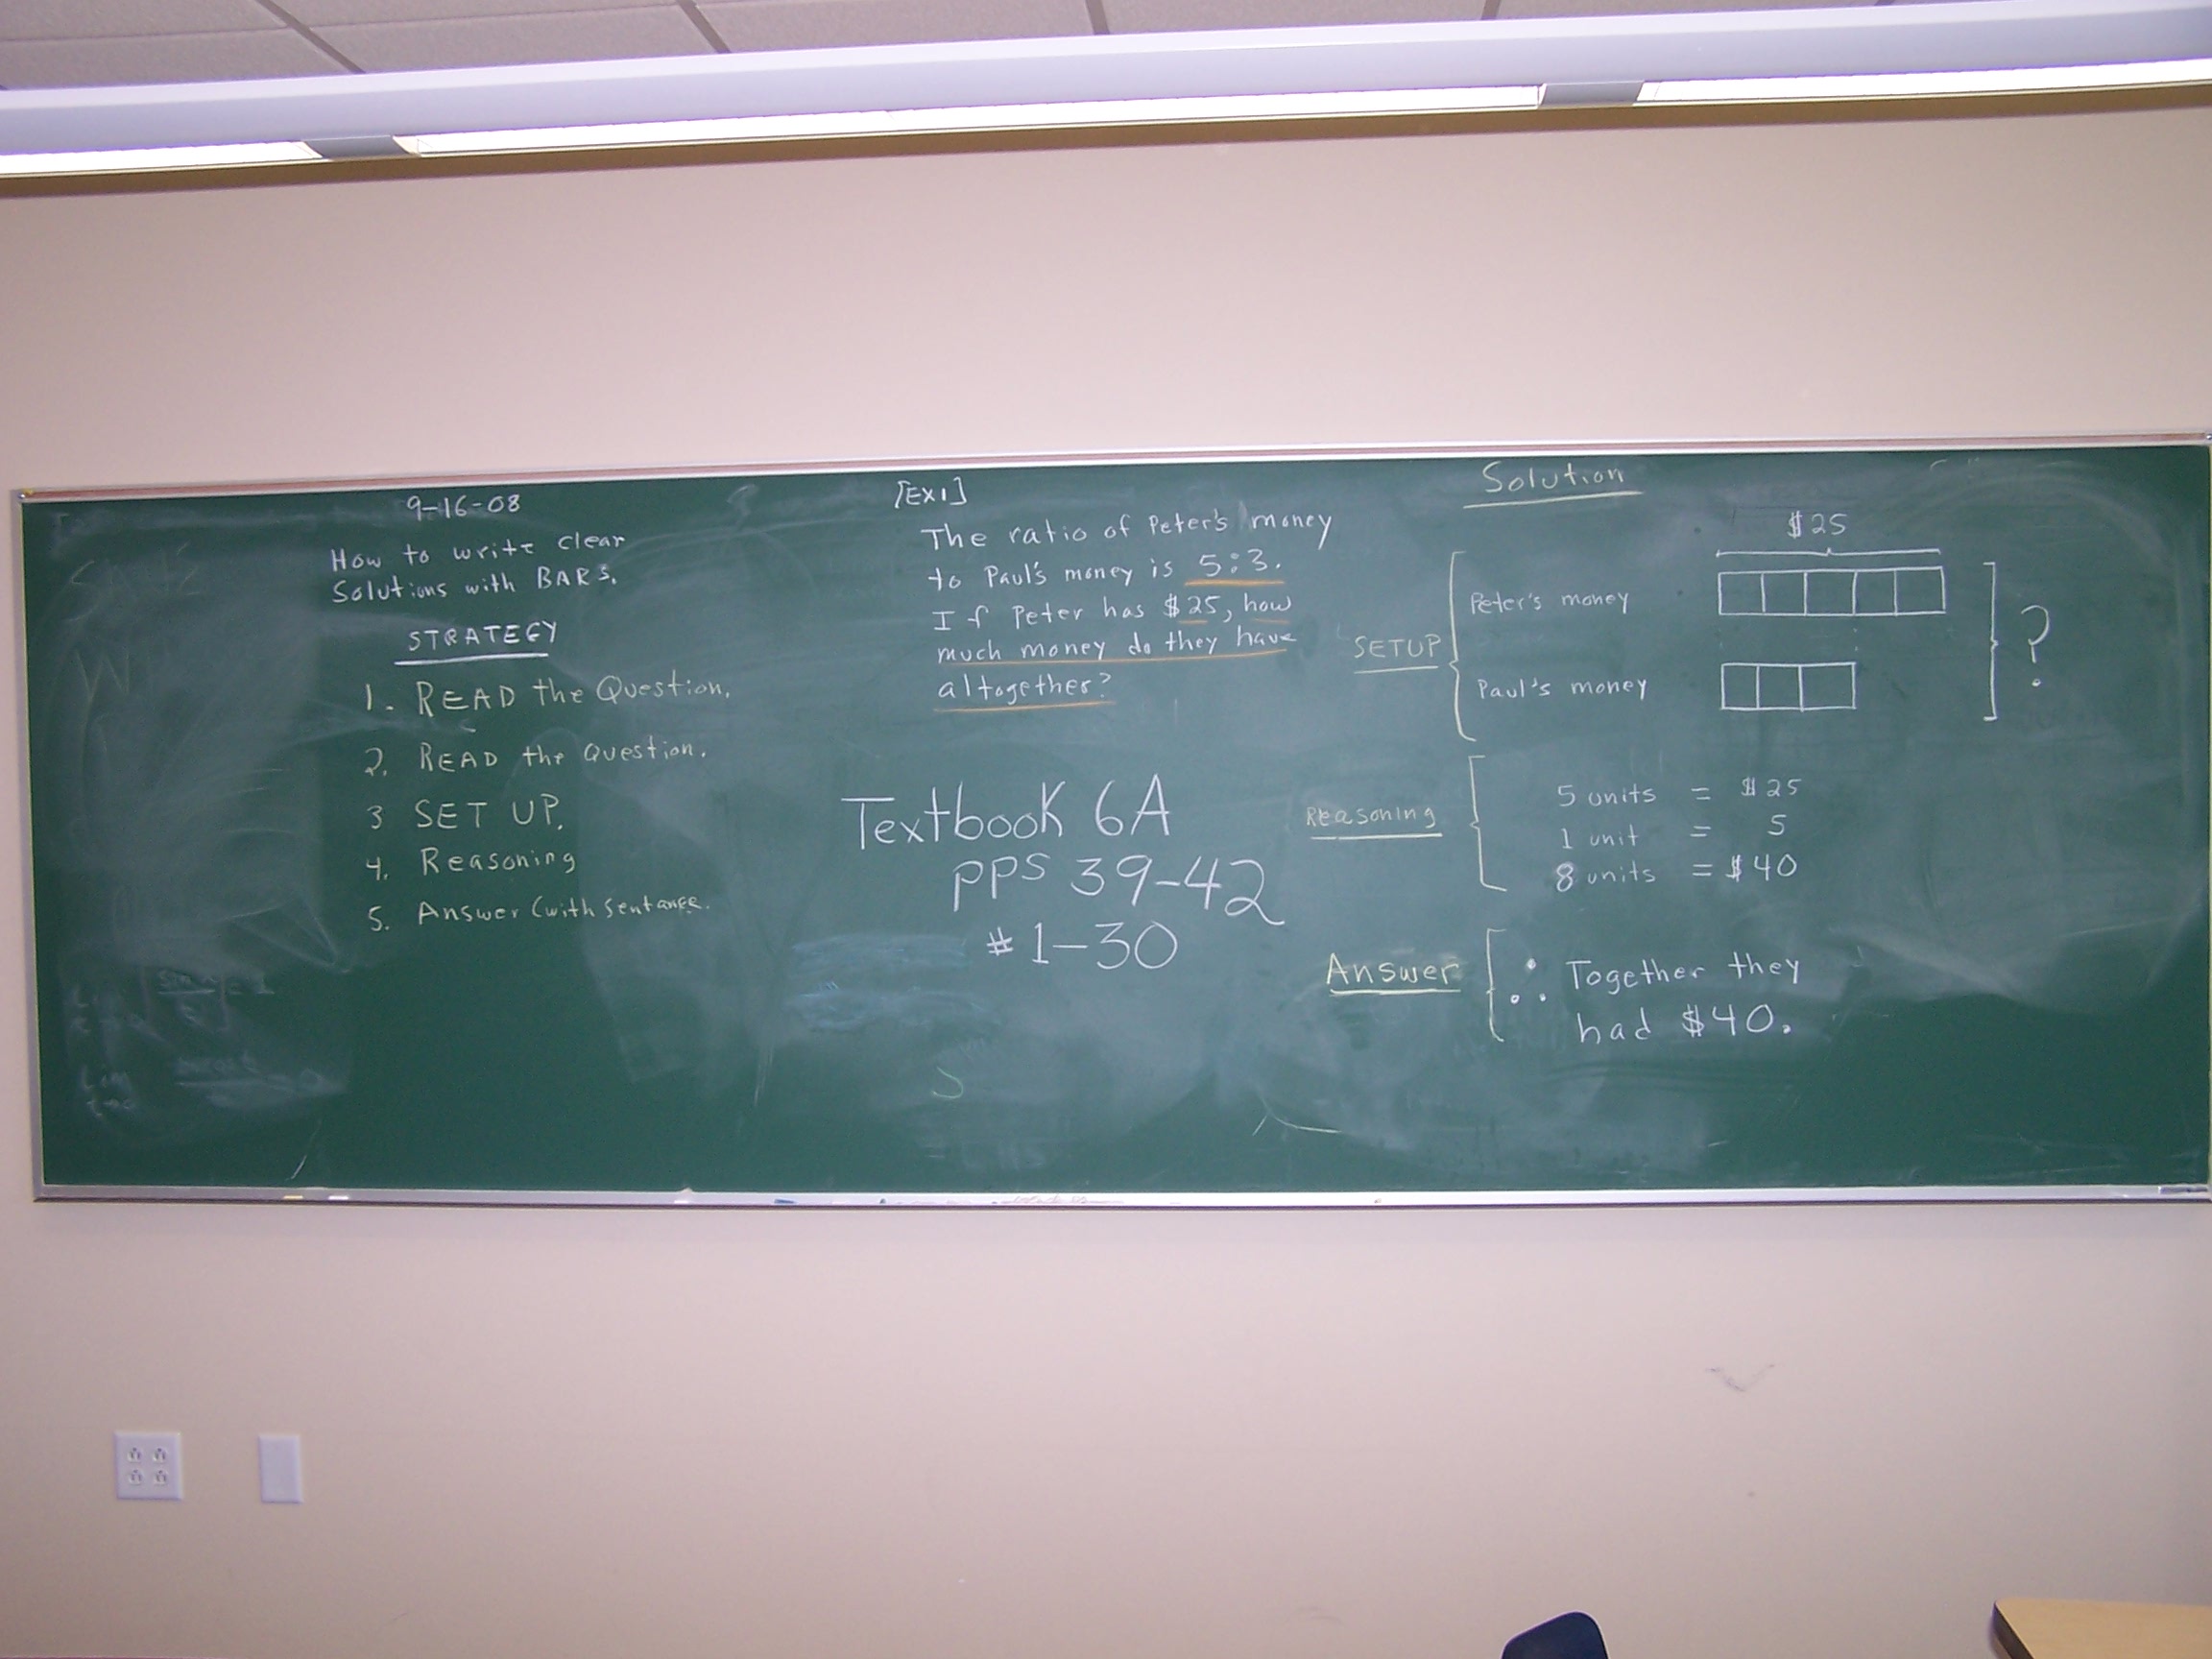 9-16-08
How to write clear
Solutions with BARS.
STRATEGY
1. READ the Question.
2. READ the Question.
3 SET UP.
4. Reasoning
5. Answer (with sentance.
[EX1]
The ratio of Peter's money
to Paul's money is 5:3.
If Peter has $25, how
much money do they have
altogether?
Textbook 6A
PPS 39-42
# 1-30
Solution
$25
Peter's money
?
SETUP
Paul's money
5 units = $25
Reasoning
1 unit = 5
8 units = $40
Answer
∴ Together they
had $40.